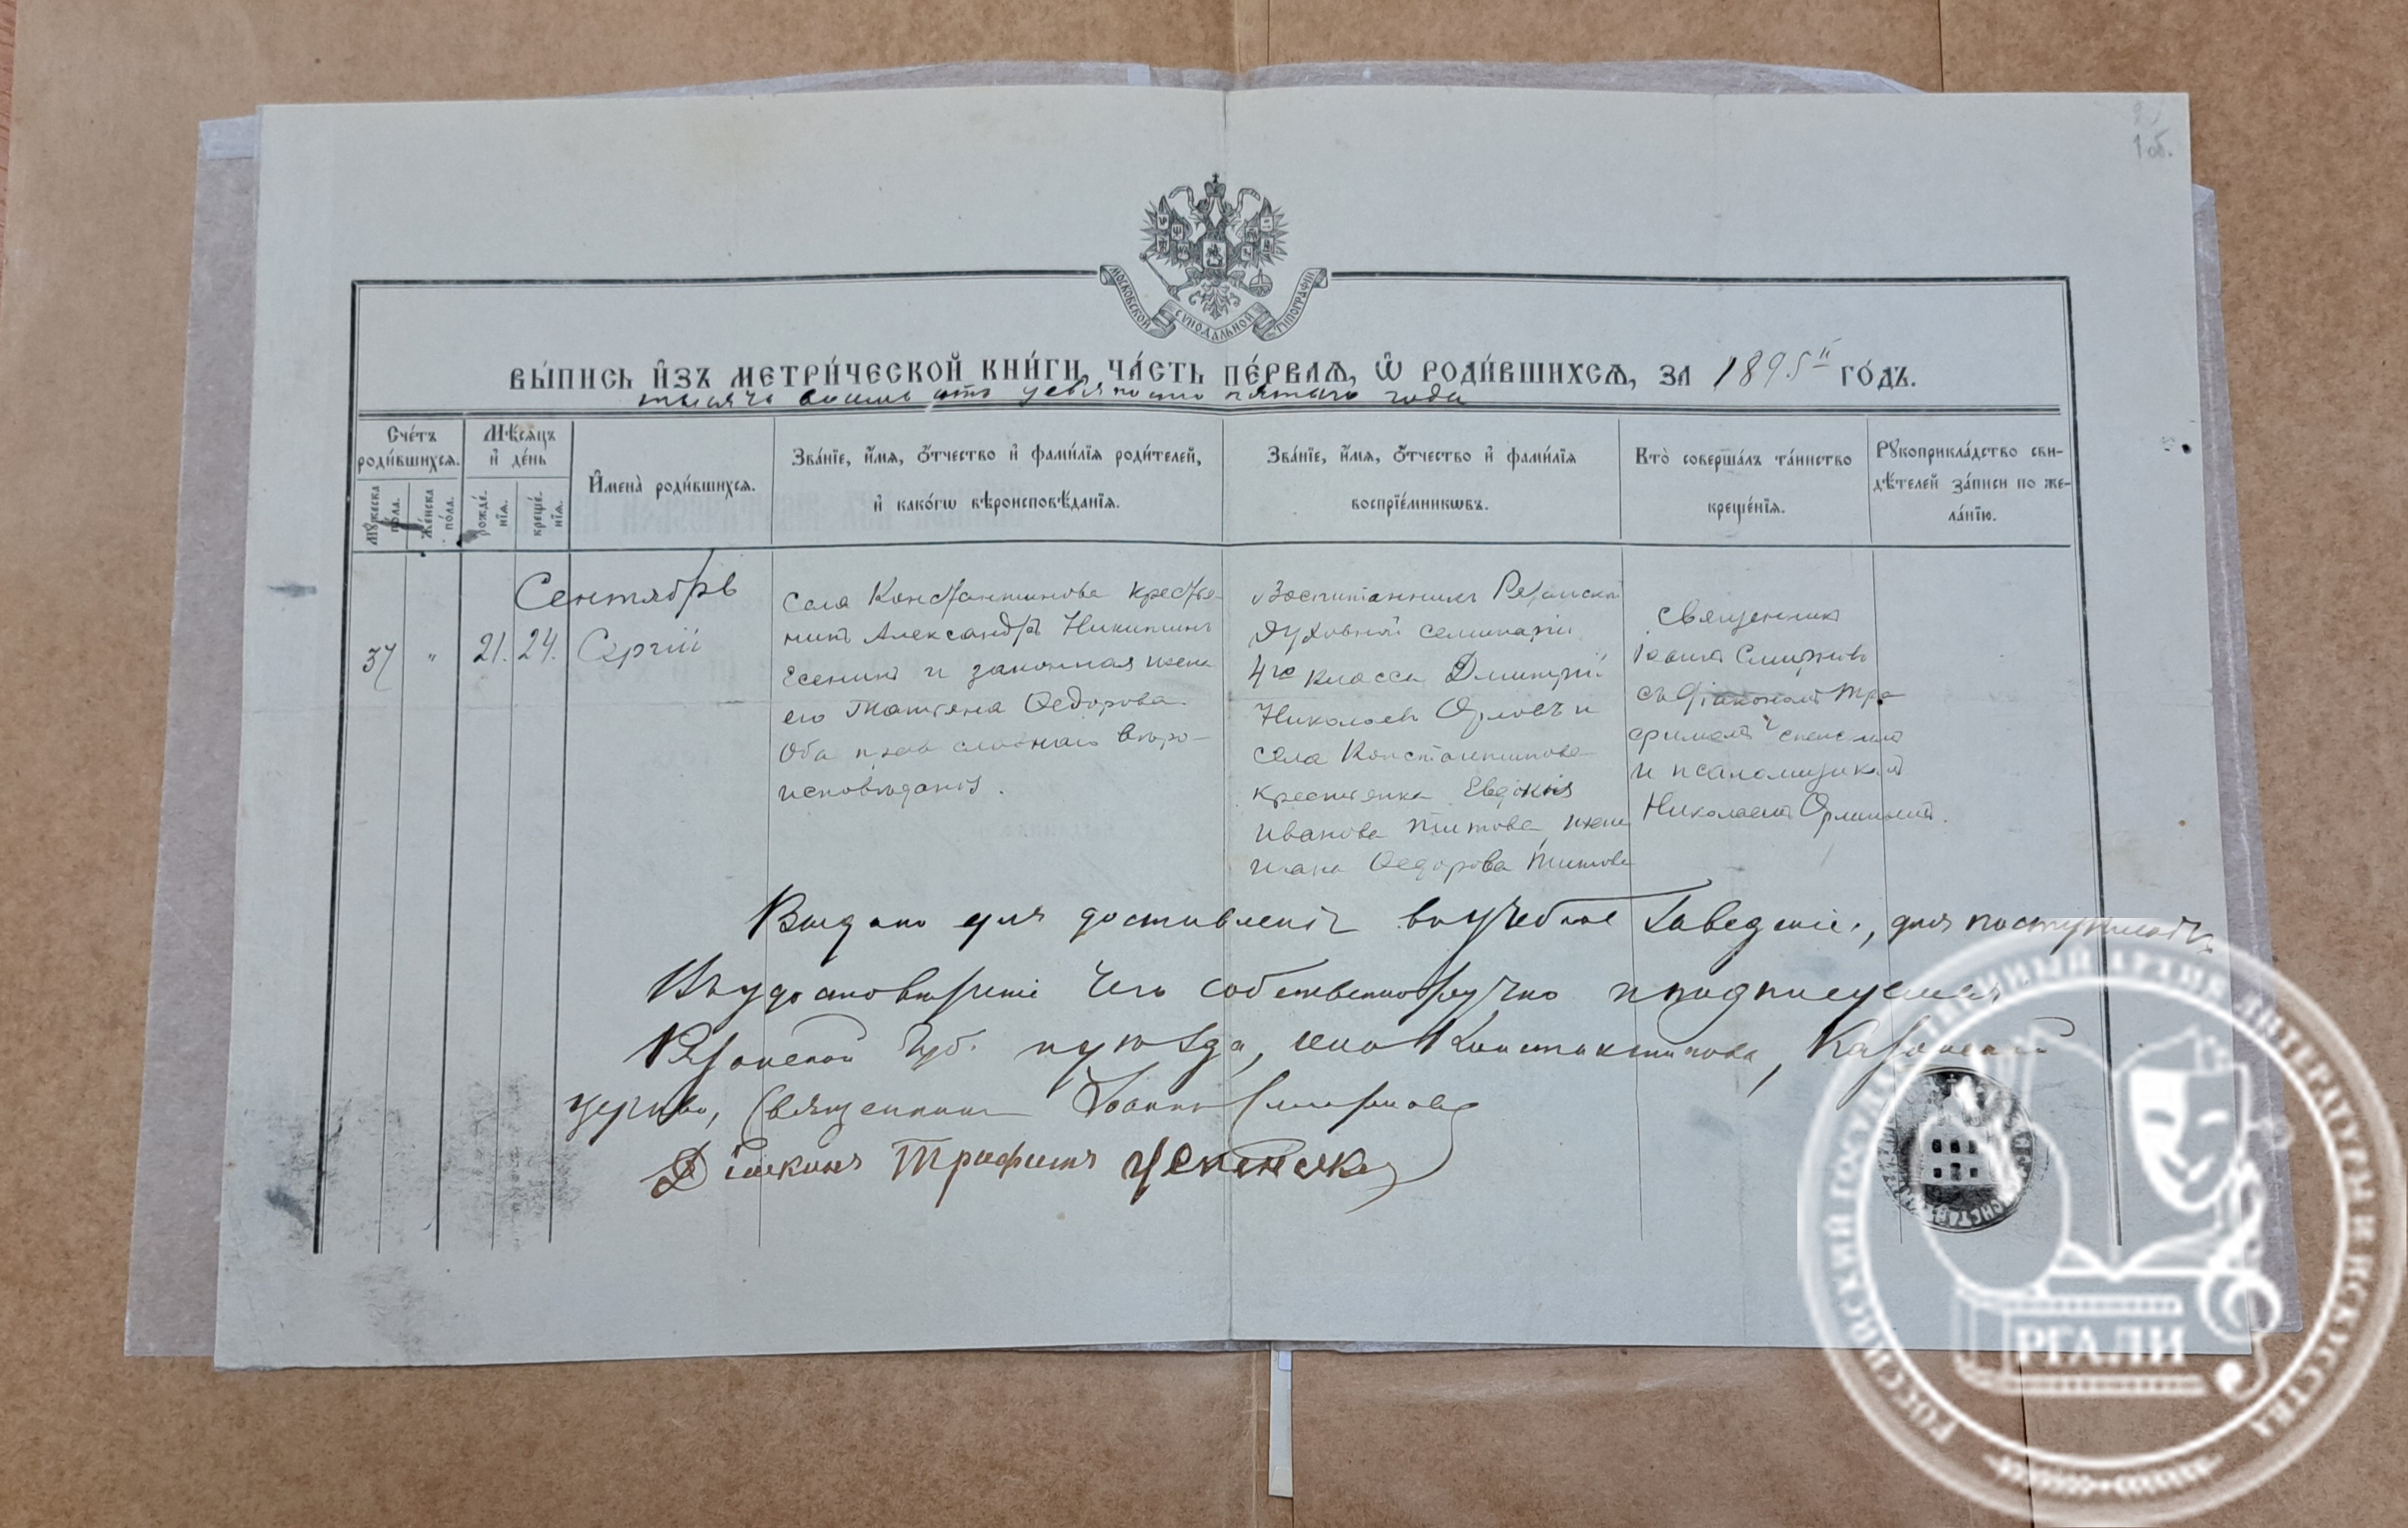 1 об.
МОСКОВСКОЙ СУНОДАЛЬНОЙ ТИПОГРАФІИ
ВЫ́ПИСЬ И҆́ЗЪ МЕТРИ́ЧЕСКОЙ КНИ́ГИ, ЧА́СТЬ ПЕ́РВАѦ, Ѡ҆ РОДИ́ВШИХСѦ, ЗА 1895й ГО́ДЪ.
тысяча восемьсотъ девяносто пятаго года
Сче́тъ роди́вшихсѧ.
Мꙋ́жеска по́ла.
Же́нска по́ла.
Мѣ́сѧцъ и҆ де́нь
рожде́нїѧ.
креще́нїѧ.
И҆мена̀ роди́вшихсѧ.
Зва́нїе, и҆́мѧ, ѻ҆́тчество и҆ фами́лїѧ роди́телей,
и҆ како́гѡ вѣроисповѣ́данїѧ.
Зва́нїе, и҆́мѧ, ѻ҆́тчество и҆ фами́лїѧ
воспрїе́мникѡвъ.
Кто̀ соверша́лъ та́инство
креще́нїѧ.
Рꙋкоприкла́дство сви-
дѣ́телей за́писи по же-
ла́нїю.
Сентябрь
37 " 21. 24. Сергій
Села Константинова крестья-
нинъ Александръ Никитинъ
Есенинъ и законная жена
его Татьяна Ѳедорова
Оба православнаго вѣро-
исповѣданія.
Воспитанникъ Рязанской
духовной семинаріи
4го класса Димитрій
Николаевъ Орловъ и
села Константинова
крестьянка Евдокія
Иванова Титова жена
Ѳедорова Титова
Священникъ
Іоаннъ Смирновъ
съ діакономъ Тро-
фимомъ Успенскимъ
и псаломщикомъ
Николаемъ
Выдано для доставленія въ учебное заведеніе, для поступленія
Въ удостовѣреніе чего собственноручно и подписуемся
Рязанской Губ. и уѣзда, села Константинова, Казанской
церкви, Священникъ Іоаннъ Смирновъ
Діаконъ Трофимъ Успенскій
РОССИЙСКИЙ ГОСУДАРСТВЕННЫЙ АРХИВ ЛИТЕРАТУРЫ И ИСКУССТВА
РГАЛИ